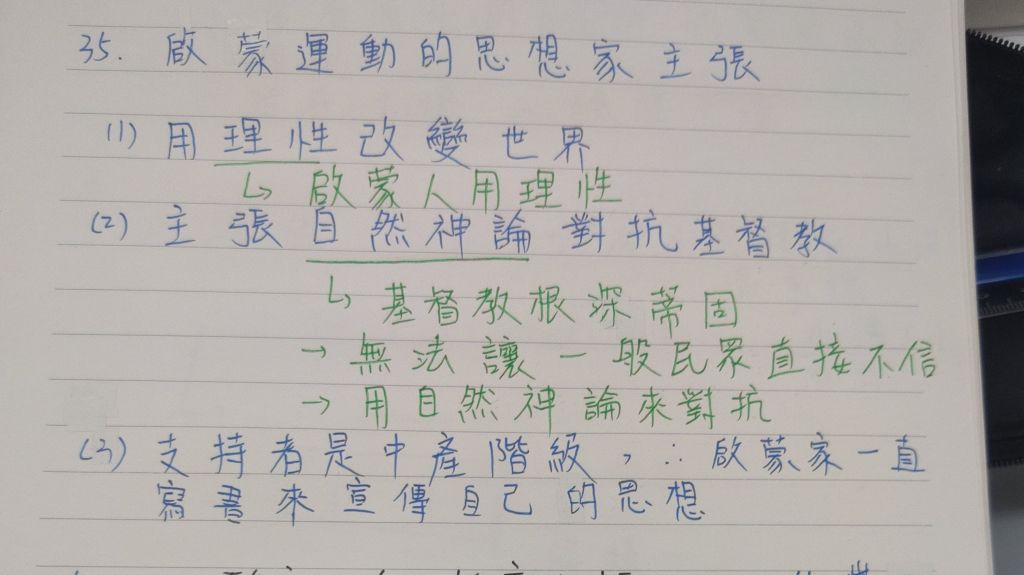 35. 啟蒙運動的思想家主張
(1) 用理性改變世界
↳ 啟蒙人用理性
(2) 主張自然神論對抗基督教
↳ 基督教根深蒂固
→ 無法讓一般民眾直接不信
→ 用自然神論來對抗
(3) 支持者是中產階級，∴ 啟蒙家一直
寫書來宣傳自己的思想